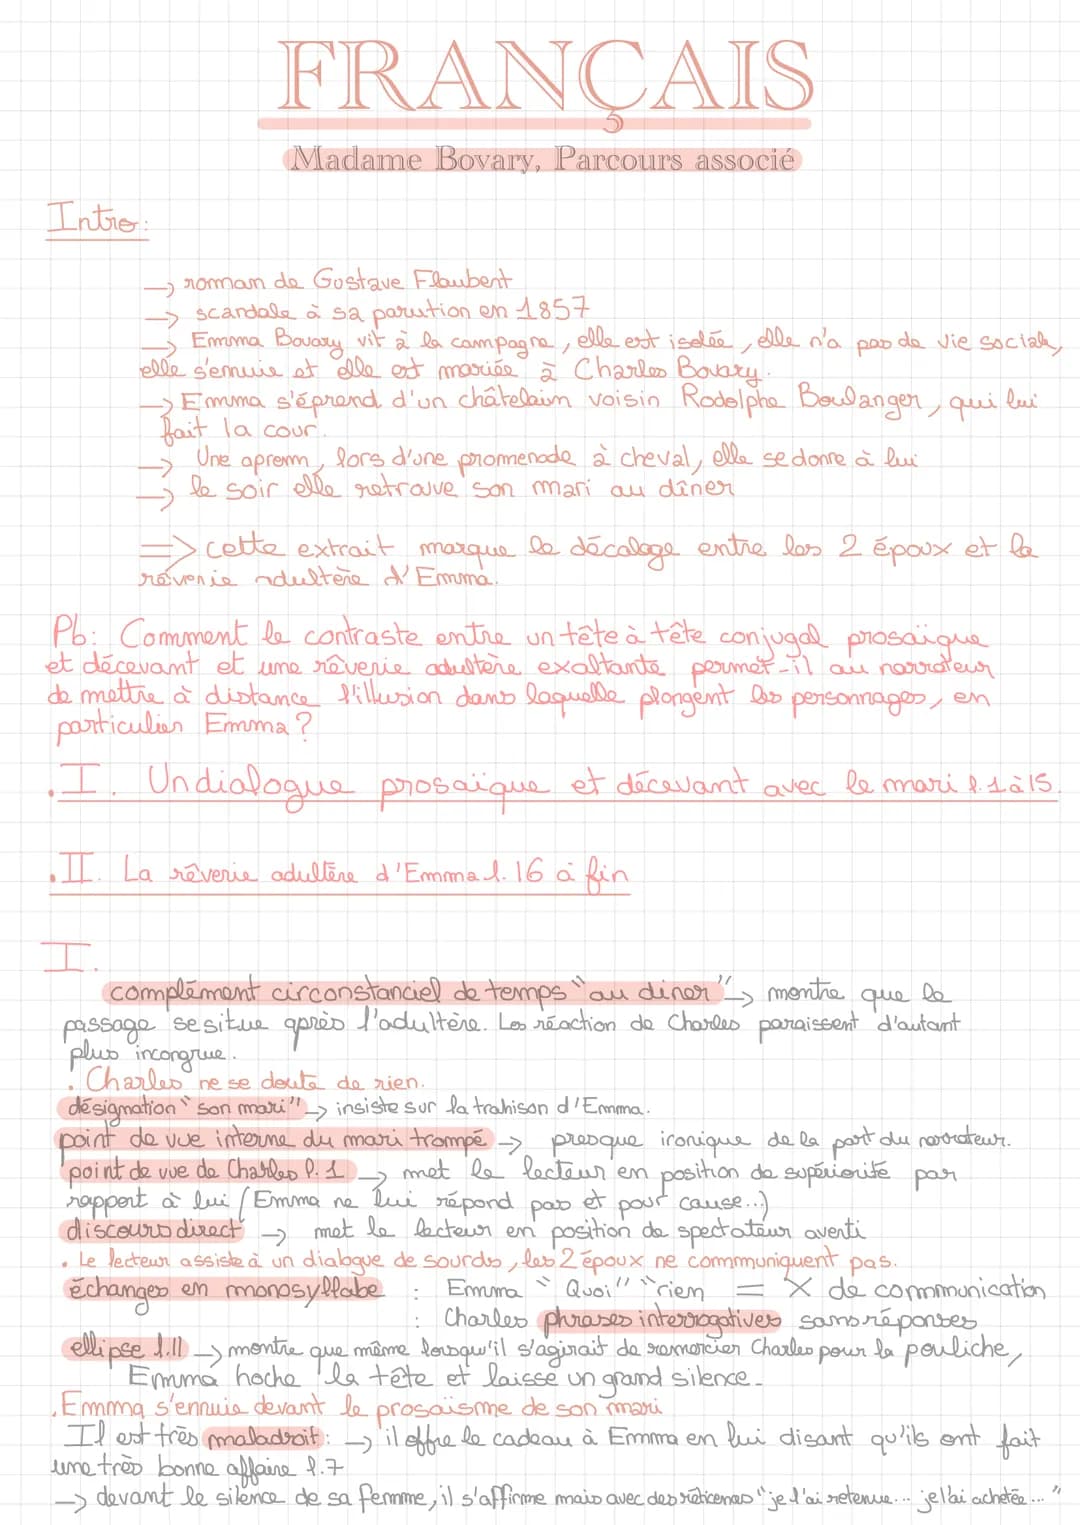 FRANÇAIS
Madame Bovary, Parcours associé
Intro:
→ roman de Gustave Flaubert
→ scandale à sa parution en 1857
→ Emma Bovary vit à la campagne, elle est isolée, elle n'a pas de vie sociale,
elle s'ennuie et elle est mariée à Charles Bovary.
→ Emma s'éprend d'un châtelain voisin Rodolphe Boulanger, qui lui
fait la cour.
→ Une aprem, lors d'une promenade à cheval, elle se donne à lui
→ le soir elle retrouve son mari au dîner
=> cette extrait marque le décalage entre les 2 époux et la
rêverie adultère d'Emma.
Pb: Comment le contraste entre un tête à tête conjugal prosaïque
et décevant et une rêverie adultère exaltante permet-il au narrateur
de mettre à distance l'illusion dans laquelle plongent les personnages, en
particulier Emma?
.I. Un dialogue prosaïque et décevant avec le mari l.1 à 15.
.II. La rêverie adultère d'Emma l.16 à fin
I.
complément circonstanciel de temps "au diner" → montre que le
passage se situe après l'adultère. Les réaction de Charles paraissent d'autant
plus incongrue.
. Charles ne se doute de rien.
désignation "son mari" → insiste sur la trahison d'Emma.
point de vue interne du mari trompé → presque ironique de la part du narrateur.
point de vue de Charles l.1 → met le lecteur en position de supériorité par
rapport à lui (Emma ne lui répond pas et pour cause...)
discours direct → met le lecteur en position de spectateur averti
. Le lecteur assiste à un dialogue de sourds, les 2 époux ne communiquent pas.
échanges en monosyllabe : Emma "Quoi" "rien = X de communication
: Charles phrases interrogatives sans réponses
ellipse l.11 → montre que même lorsqu'il s'agirait de remercier Charles pour la pouliche,
Emma hoche la tête et laisse un grand silence.
.Emma s'ennuie devant le prosaïsme de son mari
Il est très maladroit: → il offre le cadeau à Emma en lui disant qu'ils ont fait
une très bonne affaire l.7
→ devant le silence de sa femme, il s'affirme mais avec des réticences "je l'ai retenue... je l'ai achetée..."